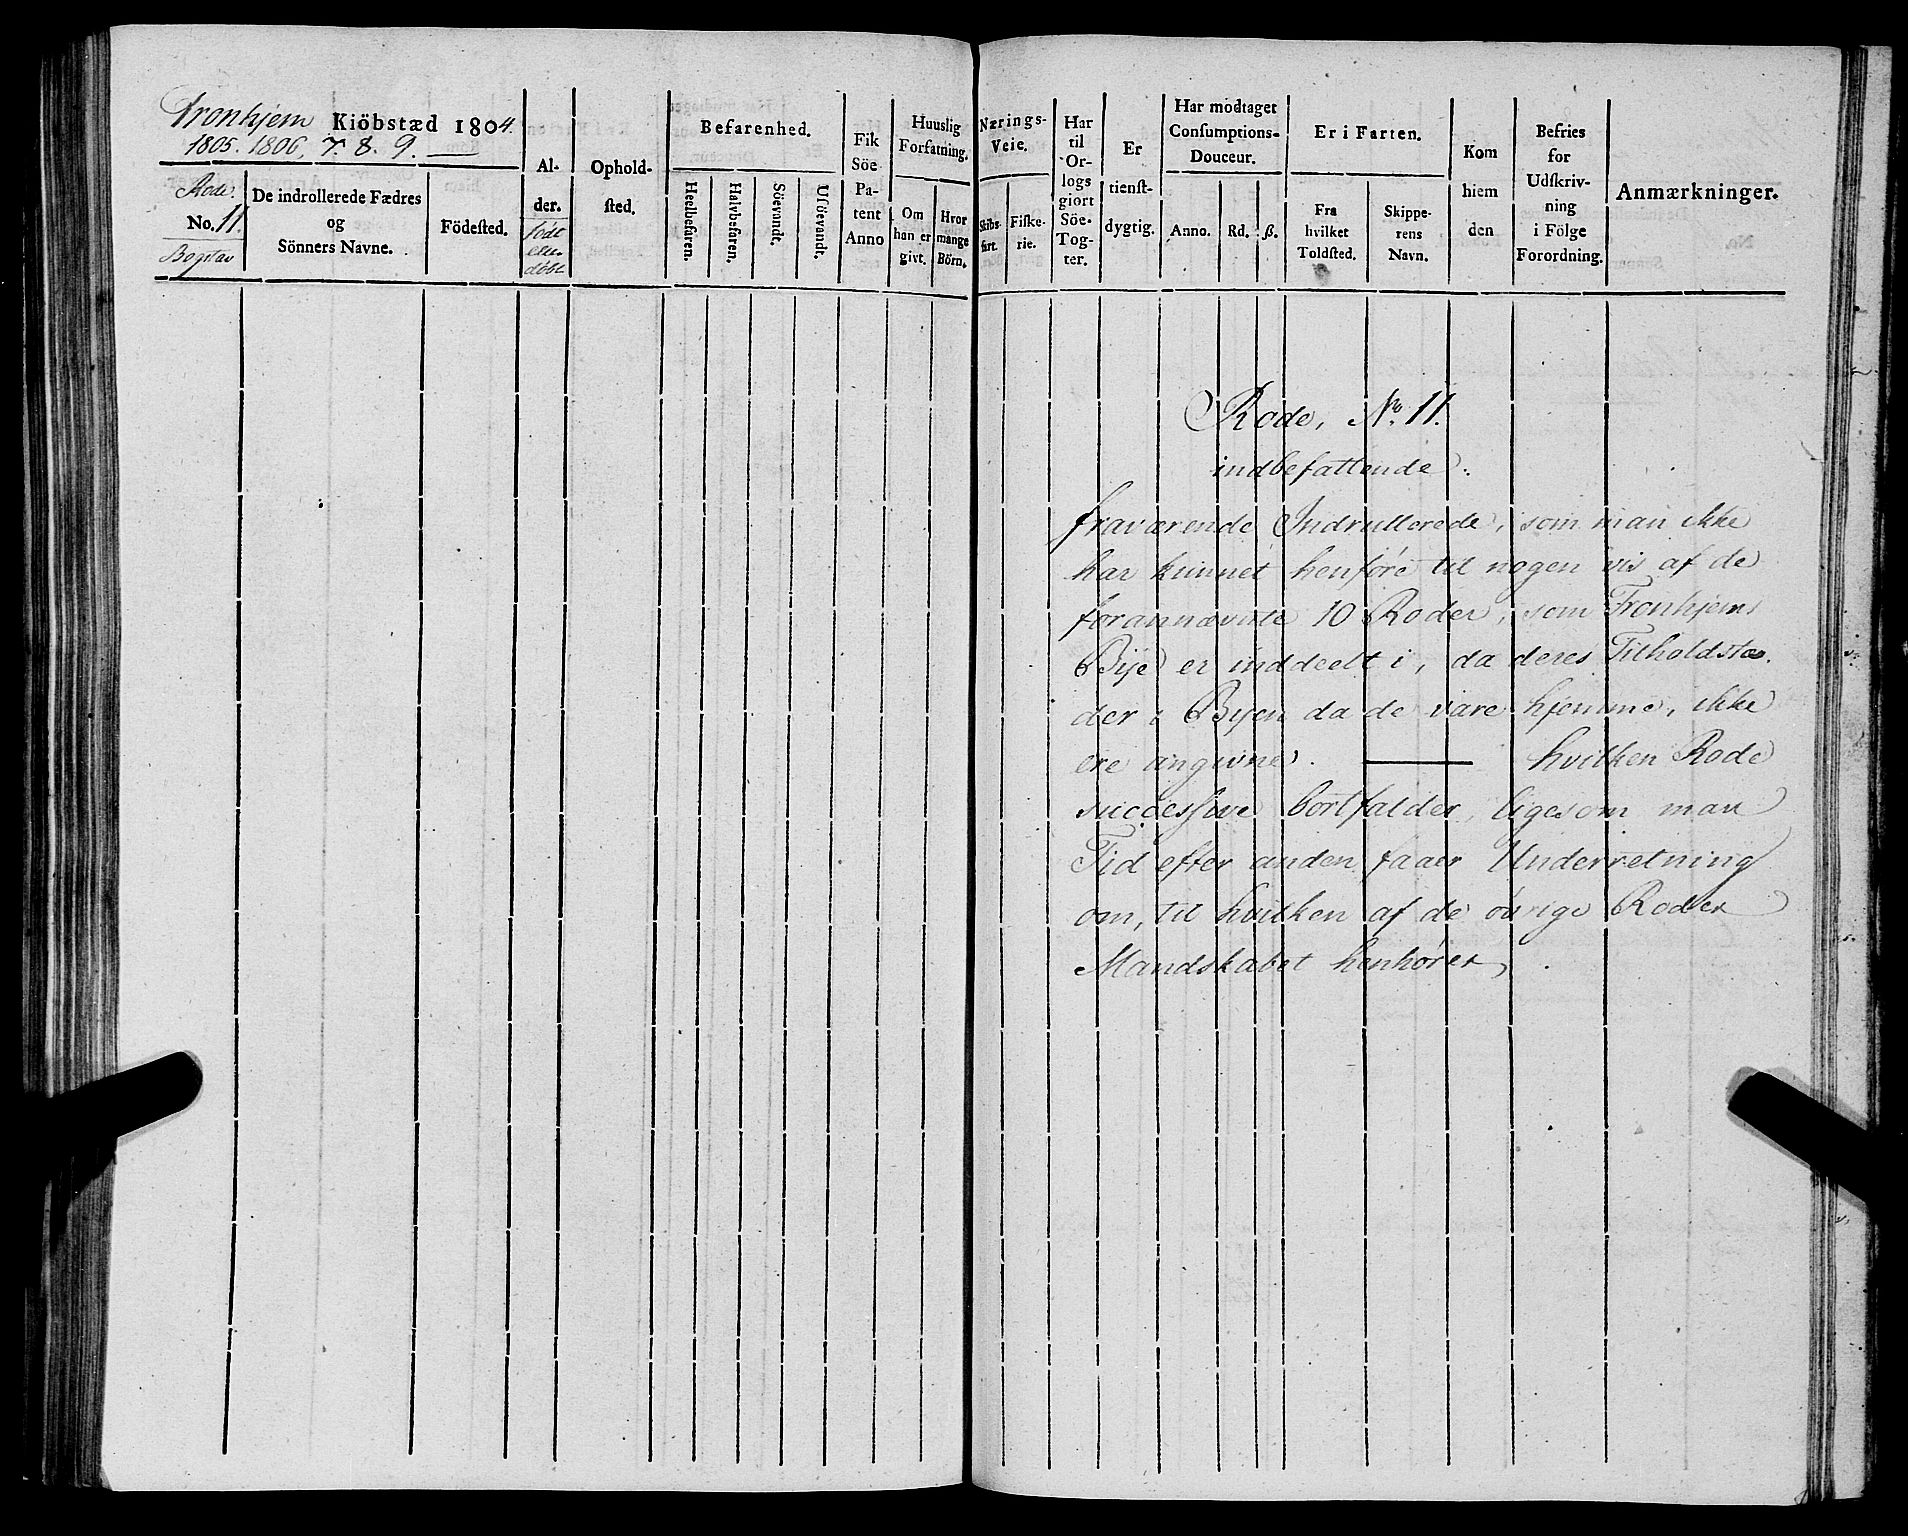 Tronhjem Kiöbstæd 1804.
1805. 1806. 7. 8. 9. —
Rode.
No. 11.
Bogstav
De indrollerede Fædres
og
Sönners Navne.
Födested.
Al-
der.
født
eller
døbt
Ophold-
sted.
Befarenhed.
Heelbefaren.
Halvbefaren.
Söevandt.
Usöevandt.
Fik
Söe
Pa-
tent
Anno
Huuslig
Forfatning.
Om
han er
givt.
Hvor
mange
Börn.
Nærings-
Veie.
Skibs-
fart.
Fiske-
rie.
Har
til
Or-
logs
giort
Söe-
Tog-
ter.
Er
tienst-
dygtig.
Har modtaget
Consumptions-
Douceur.
Anno.
Rd.
ß.
Er i Farten.
Fra
hvilket
Toldsted.
Skippe-
rens
Navn.
Kom
hiem
den
Befries
for
Udskriv-
ning
i Fölge
Forordning.
Anmærkninger.
Rode, No. 11.
indbefattende
fraværende Indrullerede, som man ikke
har kunnet henføre til nogen vis af de
forannævnte 10 Roder, som Tronhjems
Bye er inddeelt i, da deres Tilholdstæ-
der i Byen da de vare hjemme, ikke
ere angivne. — hvilken Rode
successive bortfalder, ligesom man
Tid efter anden faaer Underretning
om, til hvilken af de øvrige Roder
Mandskabet henhører,